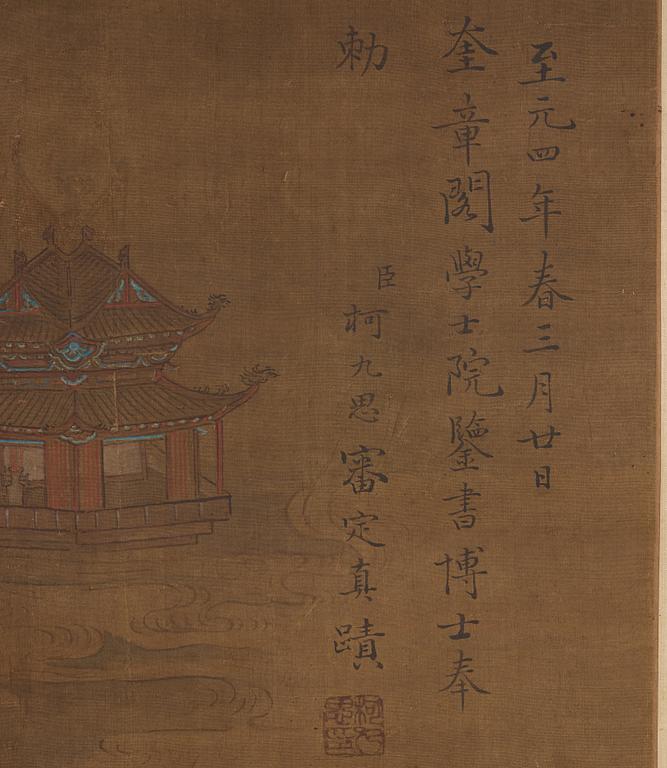 至元四年春三月廿日
奎章閣學士院鑒書博士奉
勅
臣柯九思審定真蹟